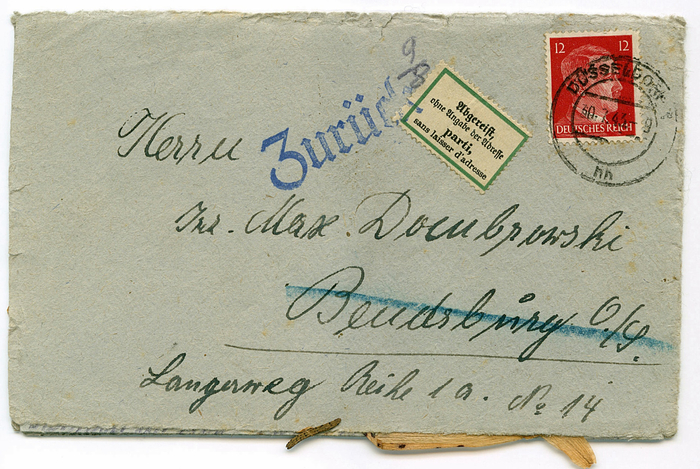 12 12
DEUTSCHES REICH
DÜSSELDORF
hh
9/8
Zurück
Abgereist,
ohne Angabe der Adresse
parti,
sans laisser d'adresse
Herrn
Inz. Max. Dombrowski
Bendsburg O/S.
Langerweg Reihe 1a. No 14